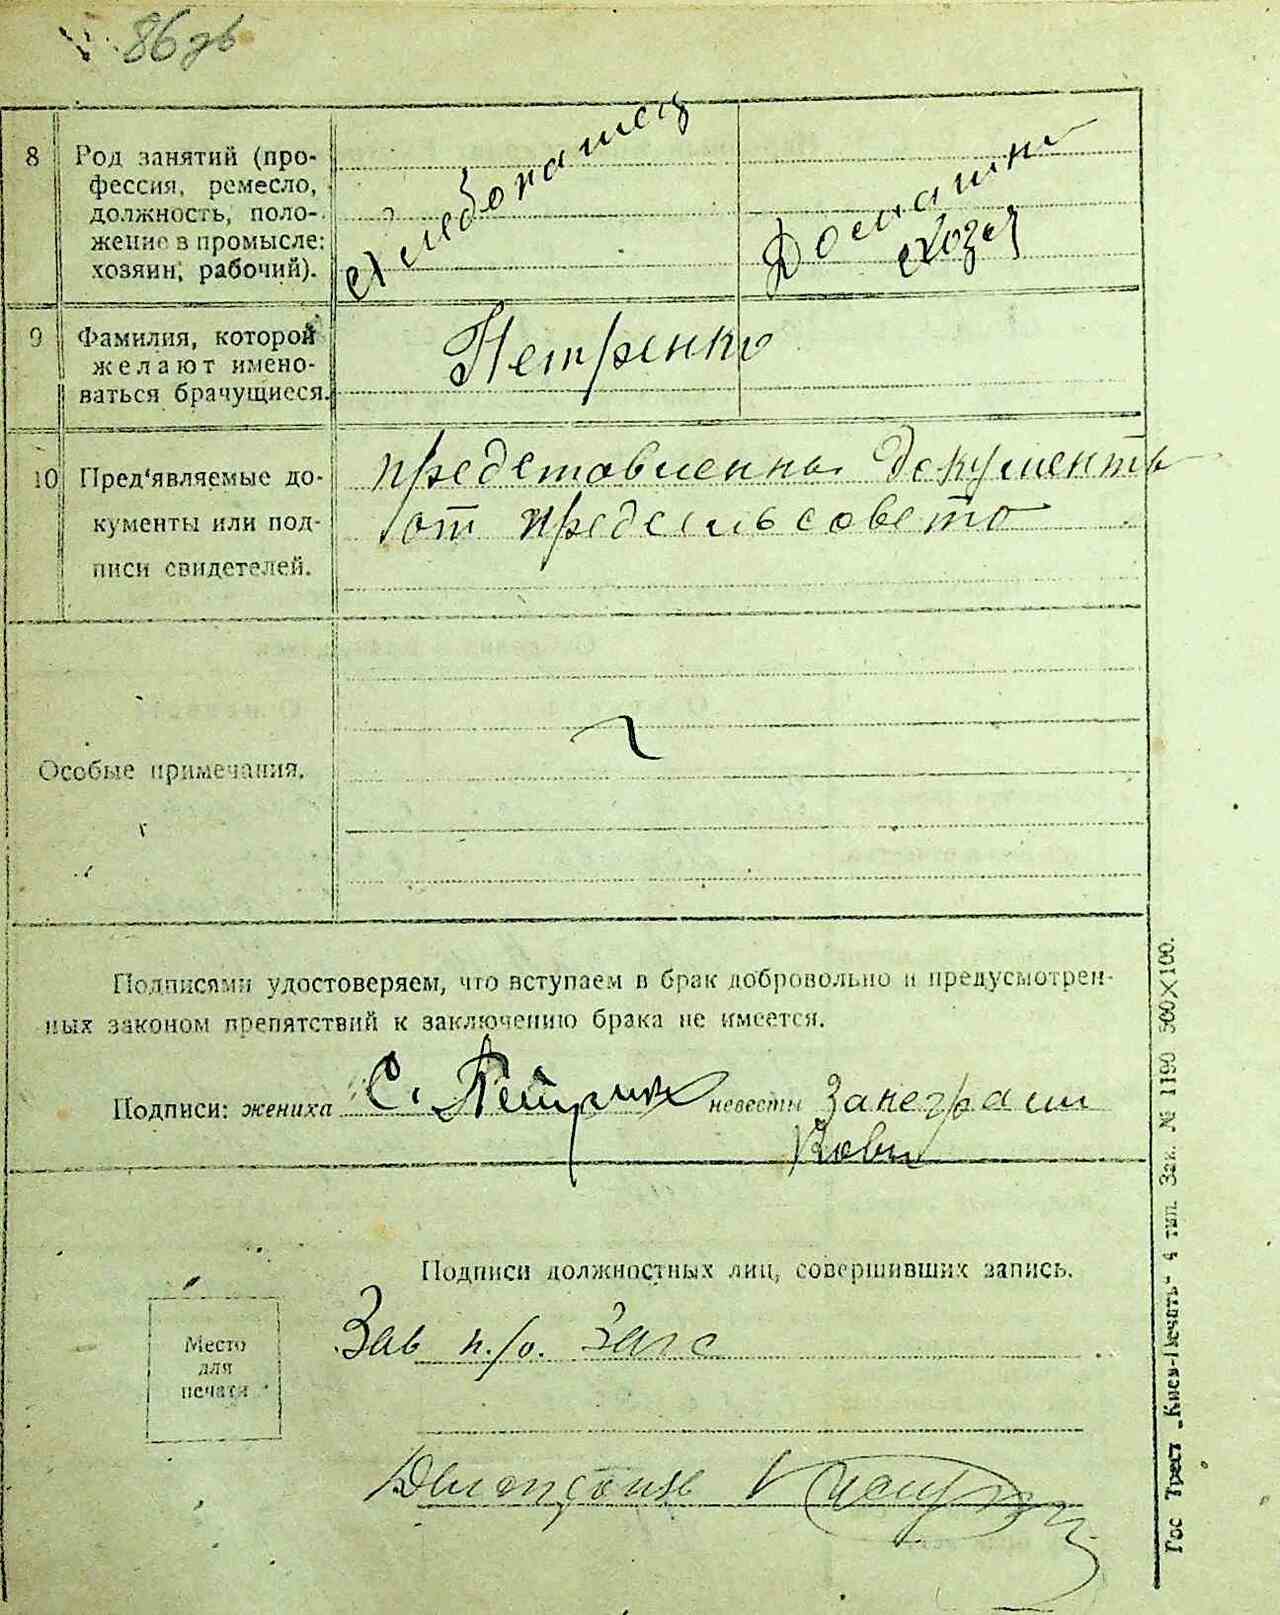 86 зв
8 Род занятий (про-
фессия, ремесло,
должность, поло-
жение в промысле:
хозяин, рабочий).
Хлебопашец
Домашня
хозя
9 Фамилия, которой
желают имено-
ваться брачущиеся.
Петренко
10 Пред'являемые до-
кументы или под-
писи свидетелей.
представленны документы
от предсельсовета
Особые примечания.
Подписями удостоверяем, что вступаем в брак добровольно и предусмотрен-
ных законом препятствий к заключению брака не имеется.
Подписи: жениха С. Петренк невесты
Подписи должностных лиц, совершивших запись.
Зав п/о. Загс
Место
для
печати
Делопроизв
Гос Трест „Киев-Печать“ 4 тип. Зак. № 1190 500×100.